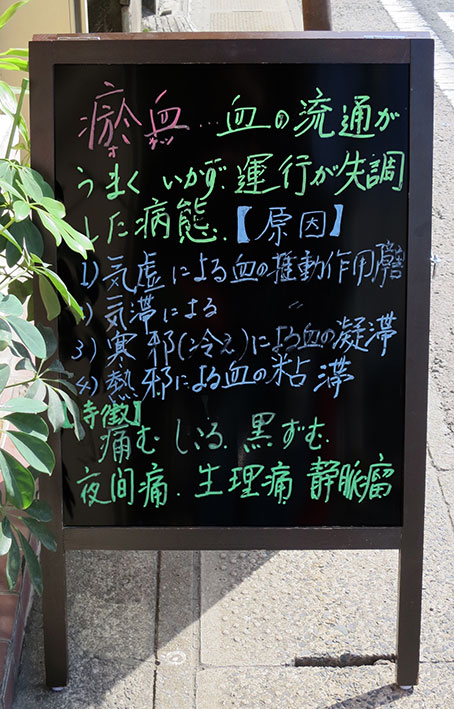 瘀血…血の流通が
お けつ
うまくいかず運行が失調
した病態.【原因】
1)気虚による血の推動作用障害
2)気滞による 〃
3)寒邪(冷え)による血の凝滞
4)熱邪による血の粘滞
【特徴】
痛む しこる. 黒ずむ.
夜间痛. 生理痛 静脈瘤